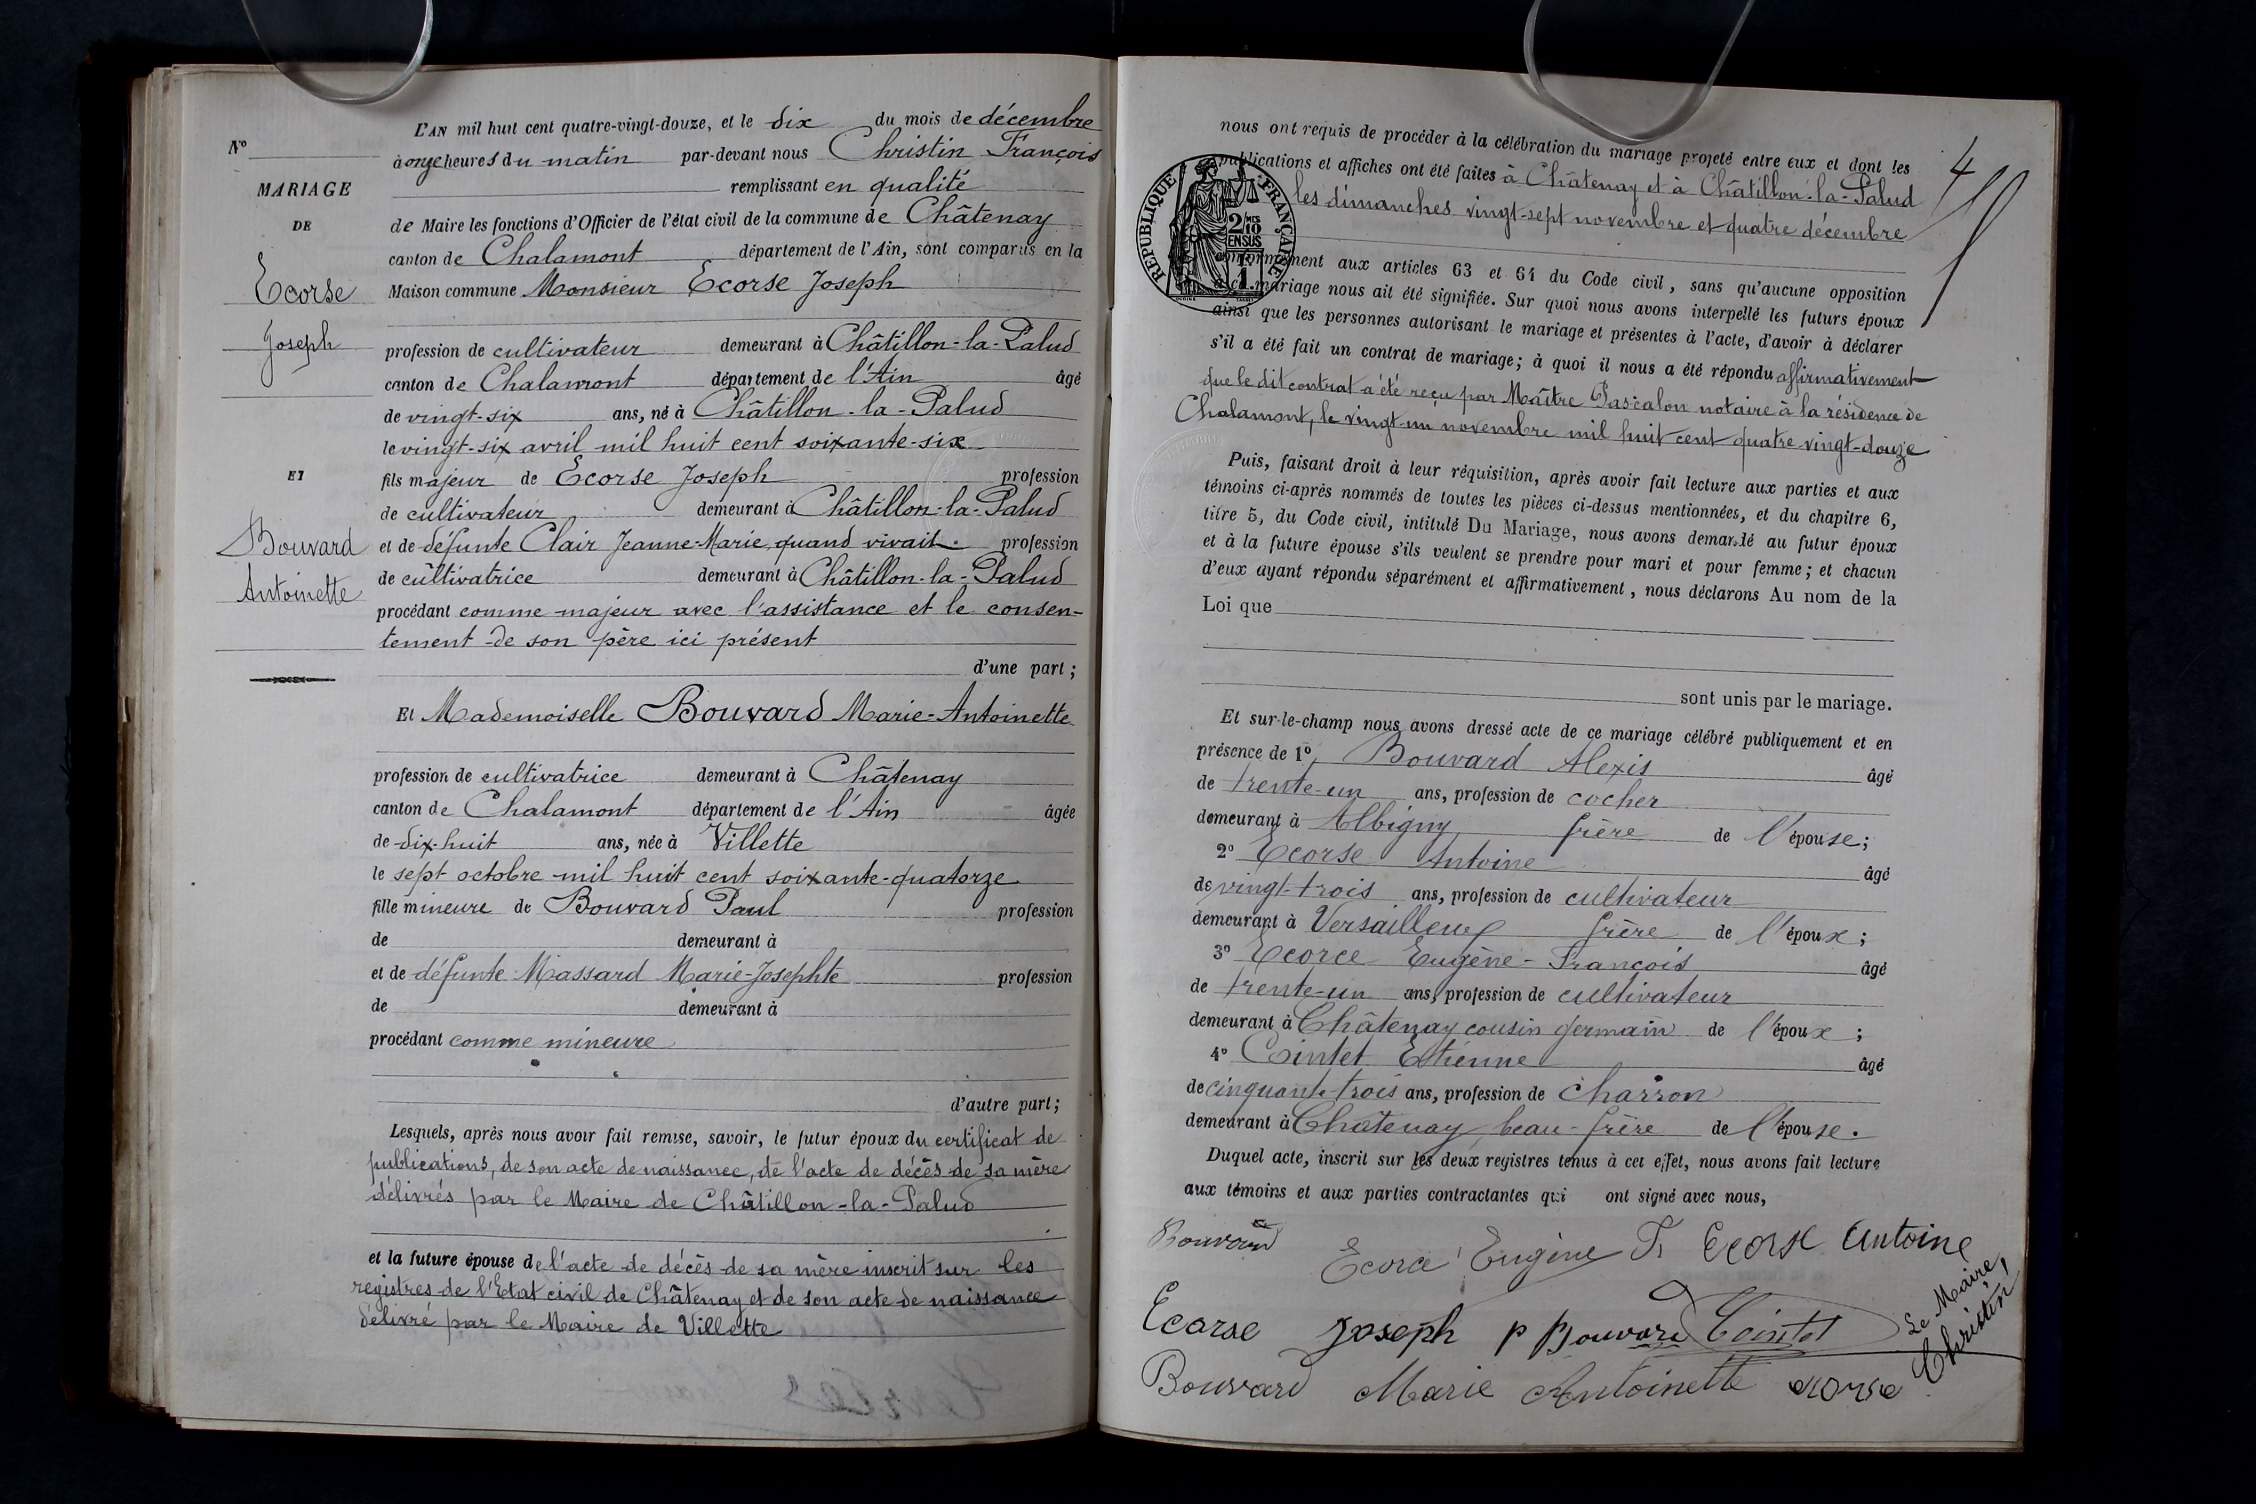 L'AN mil huit cent quatre-vingt-douze, et le dix du mois de décembre
à onze heures du matin par-devant nous Christin François
remplissant en qualité
de Maire les fonctions d'Officier de l'état civil de la commune de Châtenay
canton de Chalamont département de l'Ain, sont comparus en la
Maison commune Monsieur Ecorse Joseph
profession de cultivateur demeurant à Châtillon-la-Palud
canton de Chalamont département de l'Ain âgé
de vingt-six ans, né à Châtillon-la-Palud
le vingt-six avril mil huit cent soixante-six
fils majeur de Ecorse Joseph profession
de cultivateur demeurant à Châtillon-la-Palud
et de défunte Clair Jeanne-Marie, quand vivait. profession
de cultivatrice demeurant à Châtillon-la-Palud
procédant comme majeur avec l'assistance et le consen-
tement de son père ici présent
d'une part ;
Et Mademoiselle Bouvard Marie-Antoinette
profession de cultivatrice demeurant à Châtenay
canton de Chalamont département de l'Ain âgée
de dix-huit ans, née à Villette
le sept octobre mil huit cent soixante-quatorze
fille mineure de Bouvard Paul profession
de demeurant à
et de défunte Massard Marie-Josephte profession
de demeurant à
procédant comme mineure
d'autre part ;
Lesquels, après nous avoir fait remise, savoir, le futur époux du certificat de
publications, de son acte de naissance, de l'acte de décès de sa mère
délivrés par le Maire de Châtillon-la-Palud
et la future épouse de l'acte de décès de sa mère inscrit sur les
registres de l'Etat civil de Châtenay et de son acte de naissance
délivré par le Maire de Villette
N°
MARIAGE
DE
Ecorse
Joseph
ET
Bouvard
Antoinette
4
nous ont requis de procéder à la célébration du mariage projeté entre eux et dont les
publications et affiches ont été faites à Châtenay et à Châtillon-la-Palud
les dimanches vingt-sept novembre et quatre décembre
RÉPUBLIQUE FRANÇAISE
2/10
EN SUS
conformément aux articles 63 et 64 du Code civil, sans qu'aucune opposition
à ce mariage nous ait été signifiée. Sur quoi nous avons interpellé les futurs époux
ainsi que les personnes autorisant le mariage et présentes à l'acte, d'avoir à déclarer
s'il a été fait un contrat de mariage ; à quoi il nous a été répondu affirmativement
que le dit contrat a été reçu par Maître Pascalon notaire à la résidence de
Chalamont, le vingt-un novembre mil huit cent quatre vingt-douze
Puis, faisant droit à leur réquisition, après avoir fait lecture aux parties et aux
témoins ci-après nommés de toutes les pièces ci-dessus mentionnées, et du chapitre 6,
titre 5, du Code civil, intitulé Du Mariage, nous avons demandé au futur époux
et à la future épouse s'ils veulent se prendre pour mari et pour femme ; et chacun
d'eux ayant répondu séparément et affirmativement, nous déclarons Au nom de la
Loi que
sont unis par le mariage.
Et sur-le-champ nous avons dressé acte de ce mariage célébré publiquement et en
présence de 1° Bouvard Alexis âgé
de trente-un ans, profession de cocher
demeurant à Albigny frère de l'épouse ;
2° Ecorse Antoine âgé
de vingt-trois ans, profession de cultivateur
demeurant à Versailleux frère de l'époux ;
3° Ecorce Eugène-François âgé
de trente-un ans, profession de cultivateur
demeurant à Châtenay cousin germain de l'époux ;
4° Cointet Etienne âgé
de cinquante-trois ans, profession de charron
demeurant à Châtenay, beau-frère de l'épouse.
Duquel acte, inscrit sur les deux registres tenus à cet effet, nous avons fait lecture
aux témoins et aux parties contractantes qui ont signé avec nous,
Bouvard Ecorce Eugène F. Ecorse Antoine
Ecorse Joseph p Bouvard Cointet
Bouvard Marie Antoinette ecorse
Le Maire,
Christin